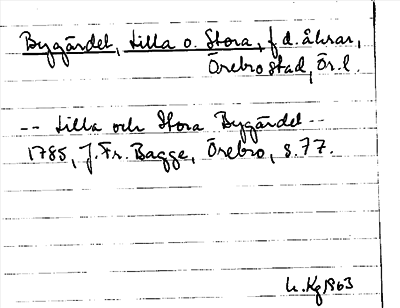 Bygärdet, Lilla o. Stora, f d. åkrar,
Örebro stad, Ör. l.
-- Lilla och Stora Bygärdet --
1785, J. Fr. Bagge, Örebro, s. 77.
U. Kg 1963